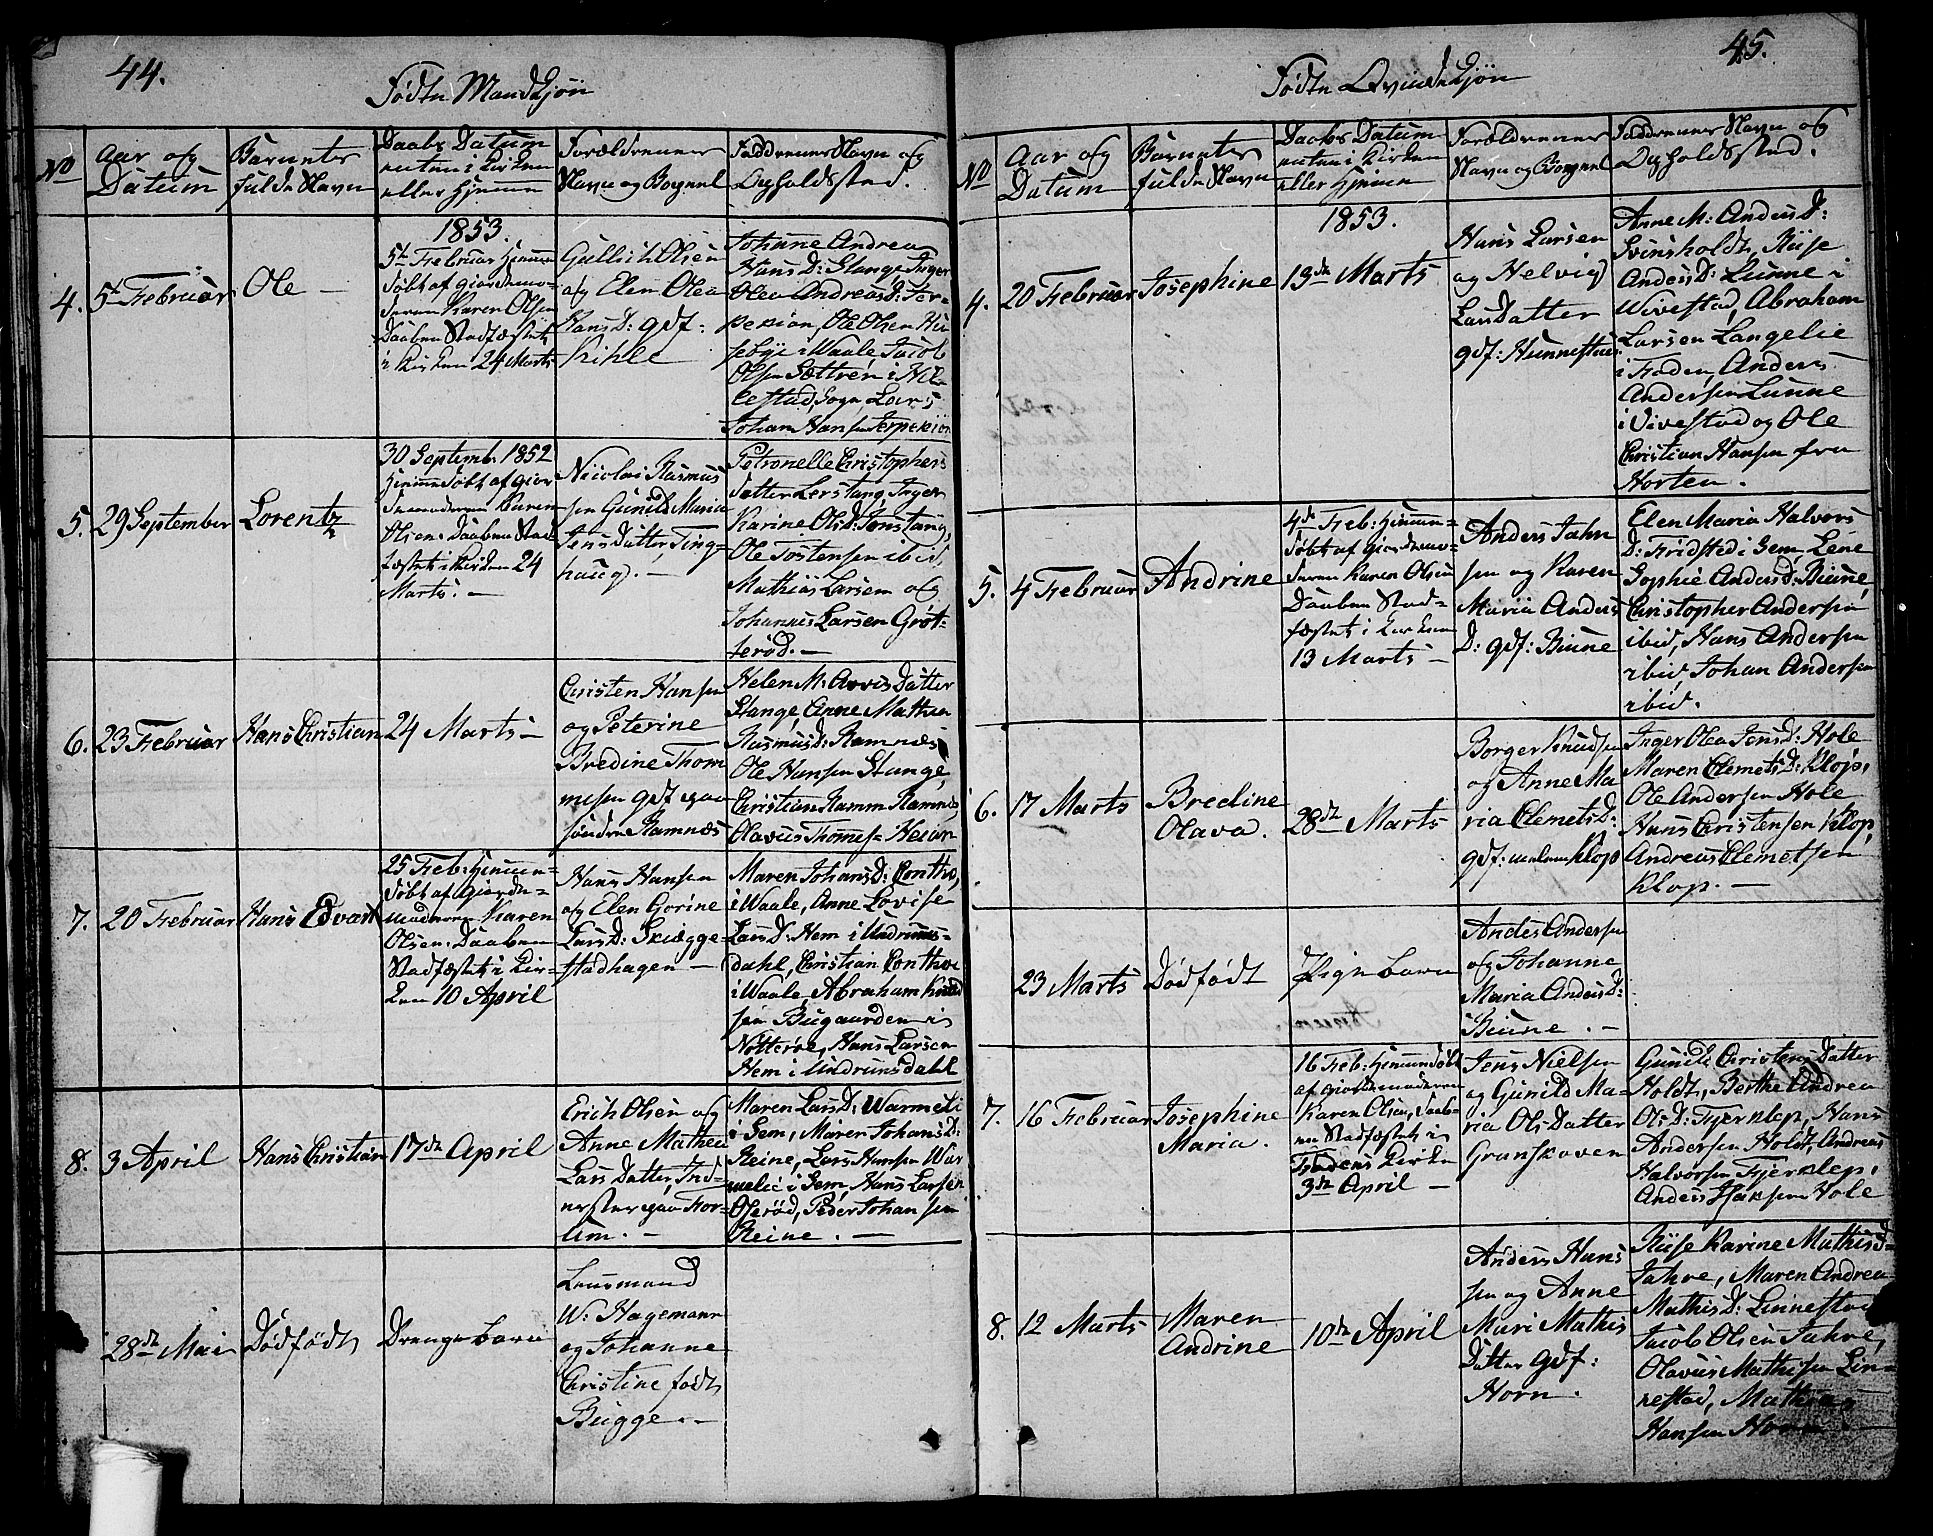 44.
Fødte Mandkjøn
No
Aar og
Datum
Barnets
fulde Navn
Daabs Datum
enten i Kirken
eller Hjemme
Forældrenes
Navn og Bopæel
Faddrenes Navn og
Opholdssted.
4.
5te Februar
Ole
1853.
5te Februar Hjemme
døbt af Giordemo-
deren Karen Olsen
Daaben Stadfæstet
i Kirken 24 Marts
Gullich Olsen
og Elen Olea
Hans D: gdf:
Kihle
Johanne Andrea
Hans D: Stange, Inger
Olea Andreas D: Jer-
pekjøn, Ole Olsen Hu-
sebye i Waale, Jacob
Olsen Sættren i Hil-
lestad Sogn, Lars
Johan Hansen Jerpekjøn
5.
29 September
Lorentz
30 Septemb. 1852
Hjemmedøbt af Gior
demoderen Karen
Olsen. Daaben Stad
fæstet i Kirken 24
Marts. -
Nicolai Rasmus
sen Gunild Maria
Jens Datter, Ting-
haug. -
Petronelle Christophers
datter Lerstang, Inger
Karine Ols D: Jonstang,
Ole Tostensen ibid,
Mathias Larsen og
Johannes Larsen Grøt-
terød. -
6.
23 Februar
Hans Christian
24 Marts -
Christen Hansen
og Peterine
Bredine Thom
mesen gdf paa
søndre Ramnæs
Helen M: Arvis Datter
Stange, Anne Mathea
Rasmus D: Ramnæs
Ole Hansen Stange,
Christian Ramm Ramnæs,
Olavus Thomes: Heian
7.
20 Februar
Hans Edvart
25 Feb: Hjemme-
døbt af Giorde-
moderen Karen
Olsen. Daaben
Stadfæstet i Kir-
ken 10 April
Hans Hansen
og Elen Gorine
Lars D: Skiægge-
stadhagen -
Maren Johans D: Contho,
i Waale, Anne Lovise
Lars D: Hem i Undrums-
dahl, Christian Conthoe
i Waale, Abraham Knud
sen Bugaarden i
Nøtterøe, Hans Larsen
Hem i Undrumsdahl
8.
3 April
Hans Christian
17de April
Erich Olsen og
Anne Mathea
Lars Datter, Ind-
erster paa For-
um. -
Maren Lars D: Warmeli
i Sem, Maren Johans D:
Reine, Lars Hansen War
melie i Sem, Hans Larsen
Olerød, Peder Johansen
Reine. -
28de Mai
Dødfødt
Drengebarn
Lensmand
W: Hagemann
og Johanne
Christine født
Bugge. -
45.
Fødte Qvindekjøn
No
Aar og
Datum
Barnets
fulde Navn
Daabs Datum
enten i Kirken
eller Hjemme
Forældrenes
Navn og Bopæel
Faddrenes Navn og
Opholdssted.
4.
20 Februar
Josephine
1853.
13de Marts
Hans Larsen
og Helvig
Lars Datter
gdf: Hunnestue
Anne M: Anders D:
Svinsholdt, Riise
Anders D: Lunne i
Wivestad, Abraham
Larsen Langelie
i Foden, Anders
Andersen Lunne
i Vivestad og Ole
Christian Hansen fra
Horten.
5.
4 Februar
Andrine
4de Feb: Hjemme-
døbt af Giordemo-
deren Karen Olsen
Daaben Stad-
fæstet i Kirken
13 Marts -
Anders Jahn
sen og Karen
Maria Anders
D: gdf: Biune
Elen Maria Halvors
D: Fridsted i Sem, Lene
Sophie Anders D: Biune,
Christopher Andersen
ibid, Hans Andersen
ibid, Johan Andersen
ibid.
6.
17 Marts
Bredine
Olava.
28de Marts
Borger Knudsen
og Anne Ma
ria Clemets D:
gdf: Klop
Inger Olea Jens D: Hole
Maren Clemets D: Klop,
Ole Andersen Hole
Hans Christensen Klop,
Andreas Clemetsen
Klop. -
23 Marts
Dødfødt
Pigebarn
Anders Andersen
og Johanne
Maria Anders D:
Biune. -
7.
16 Februar
Josephine
Maria.
16 Feb: Hjemmedøbt
af Giordemoderen
Karen Olsen, Daab-
en Stadfæstet i
Fodens Kirke
3de April -
Jens Nielsen
og Gunild Ma-
ria Ols Datter
Granskoven
Gunild Christens Datter
Holdt, Berthe Andrea
Ols D: Fjerklep, Hans
Andersen Holdt, Andreas
Halvorsen Fjerklep,
Anders Isaksen Hole
8.
12 Marts
Maren
Andrine
10de April
Anders Hans
sen og Anne
Mari Mathis
Datter gdf:
Horn.
Riise Karine Mathis D-
Jahre, Maren Andrea
Mathis D: Linnestad
Jacob Olsen Jahre,
Olavus Mathisen Lin-
nestad, Mathias
Hansen Horn.